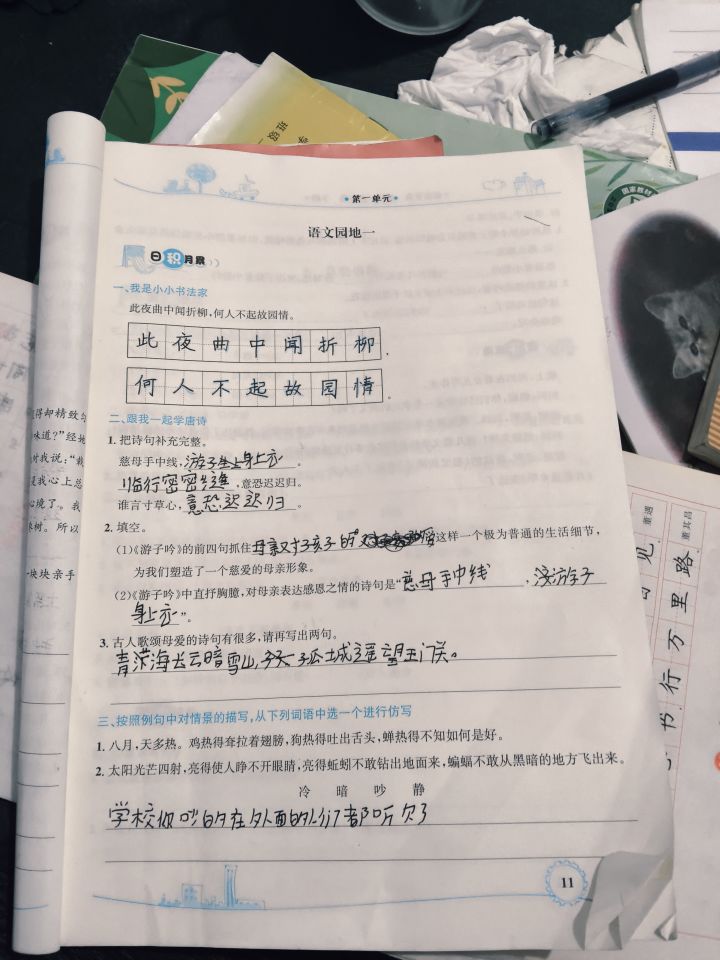 第一单元
语文园地一
日积月累
一、我是小小书法家
此夜曲中闻折柳,何人不起故园情。
此夜曲中闻折柳,
何人不起故园情。
二、跟我一起学唐诗
1. 把诗句补充完整。
慈母手中线,游子生上身上衣。
临行密密缝,意恐迟迟归。
谁言寸草心,意恐迟迟归。
2. 填空。
(1)《游子吟》的前四句抓住母亲对孩子的 这样一个极为普通的生活细节,
为我们塑造了一个慈爱的母亲形象。
(2)《游子吟》中直抒胸臆,对母亲表达感恩之情的诗句是“慈母手中线,游子
身上衣”。
3. 古人歌颂母爱的诗句有很多,请再写出两句。
青 海长云暗雪山,孤城遥望玉门关。
三、按照例句中对情景的描写,从下列词语中选一个进行仿写
1. 八月,天多热。鸡热得耷拉着翅膀,狗热得吐出舌头,蝉热得不知如何是好。
2. 太阳光芒四射,亮得使人睁不开眼睛,亮得蚯蚓不敢钻出地面来,蝙蝠不敢从黑暗的地方飞出来。
冷 暗 吵 静
学校很吵的在外面的人们都听
11
得却精致
味道?”经
对我说:“我
我心上总
心境了。我
树。所以
块块亲手
国家教材
董遇
董其昌
见
路
里
万
行
书